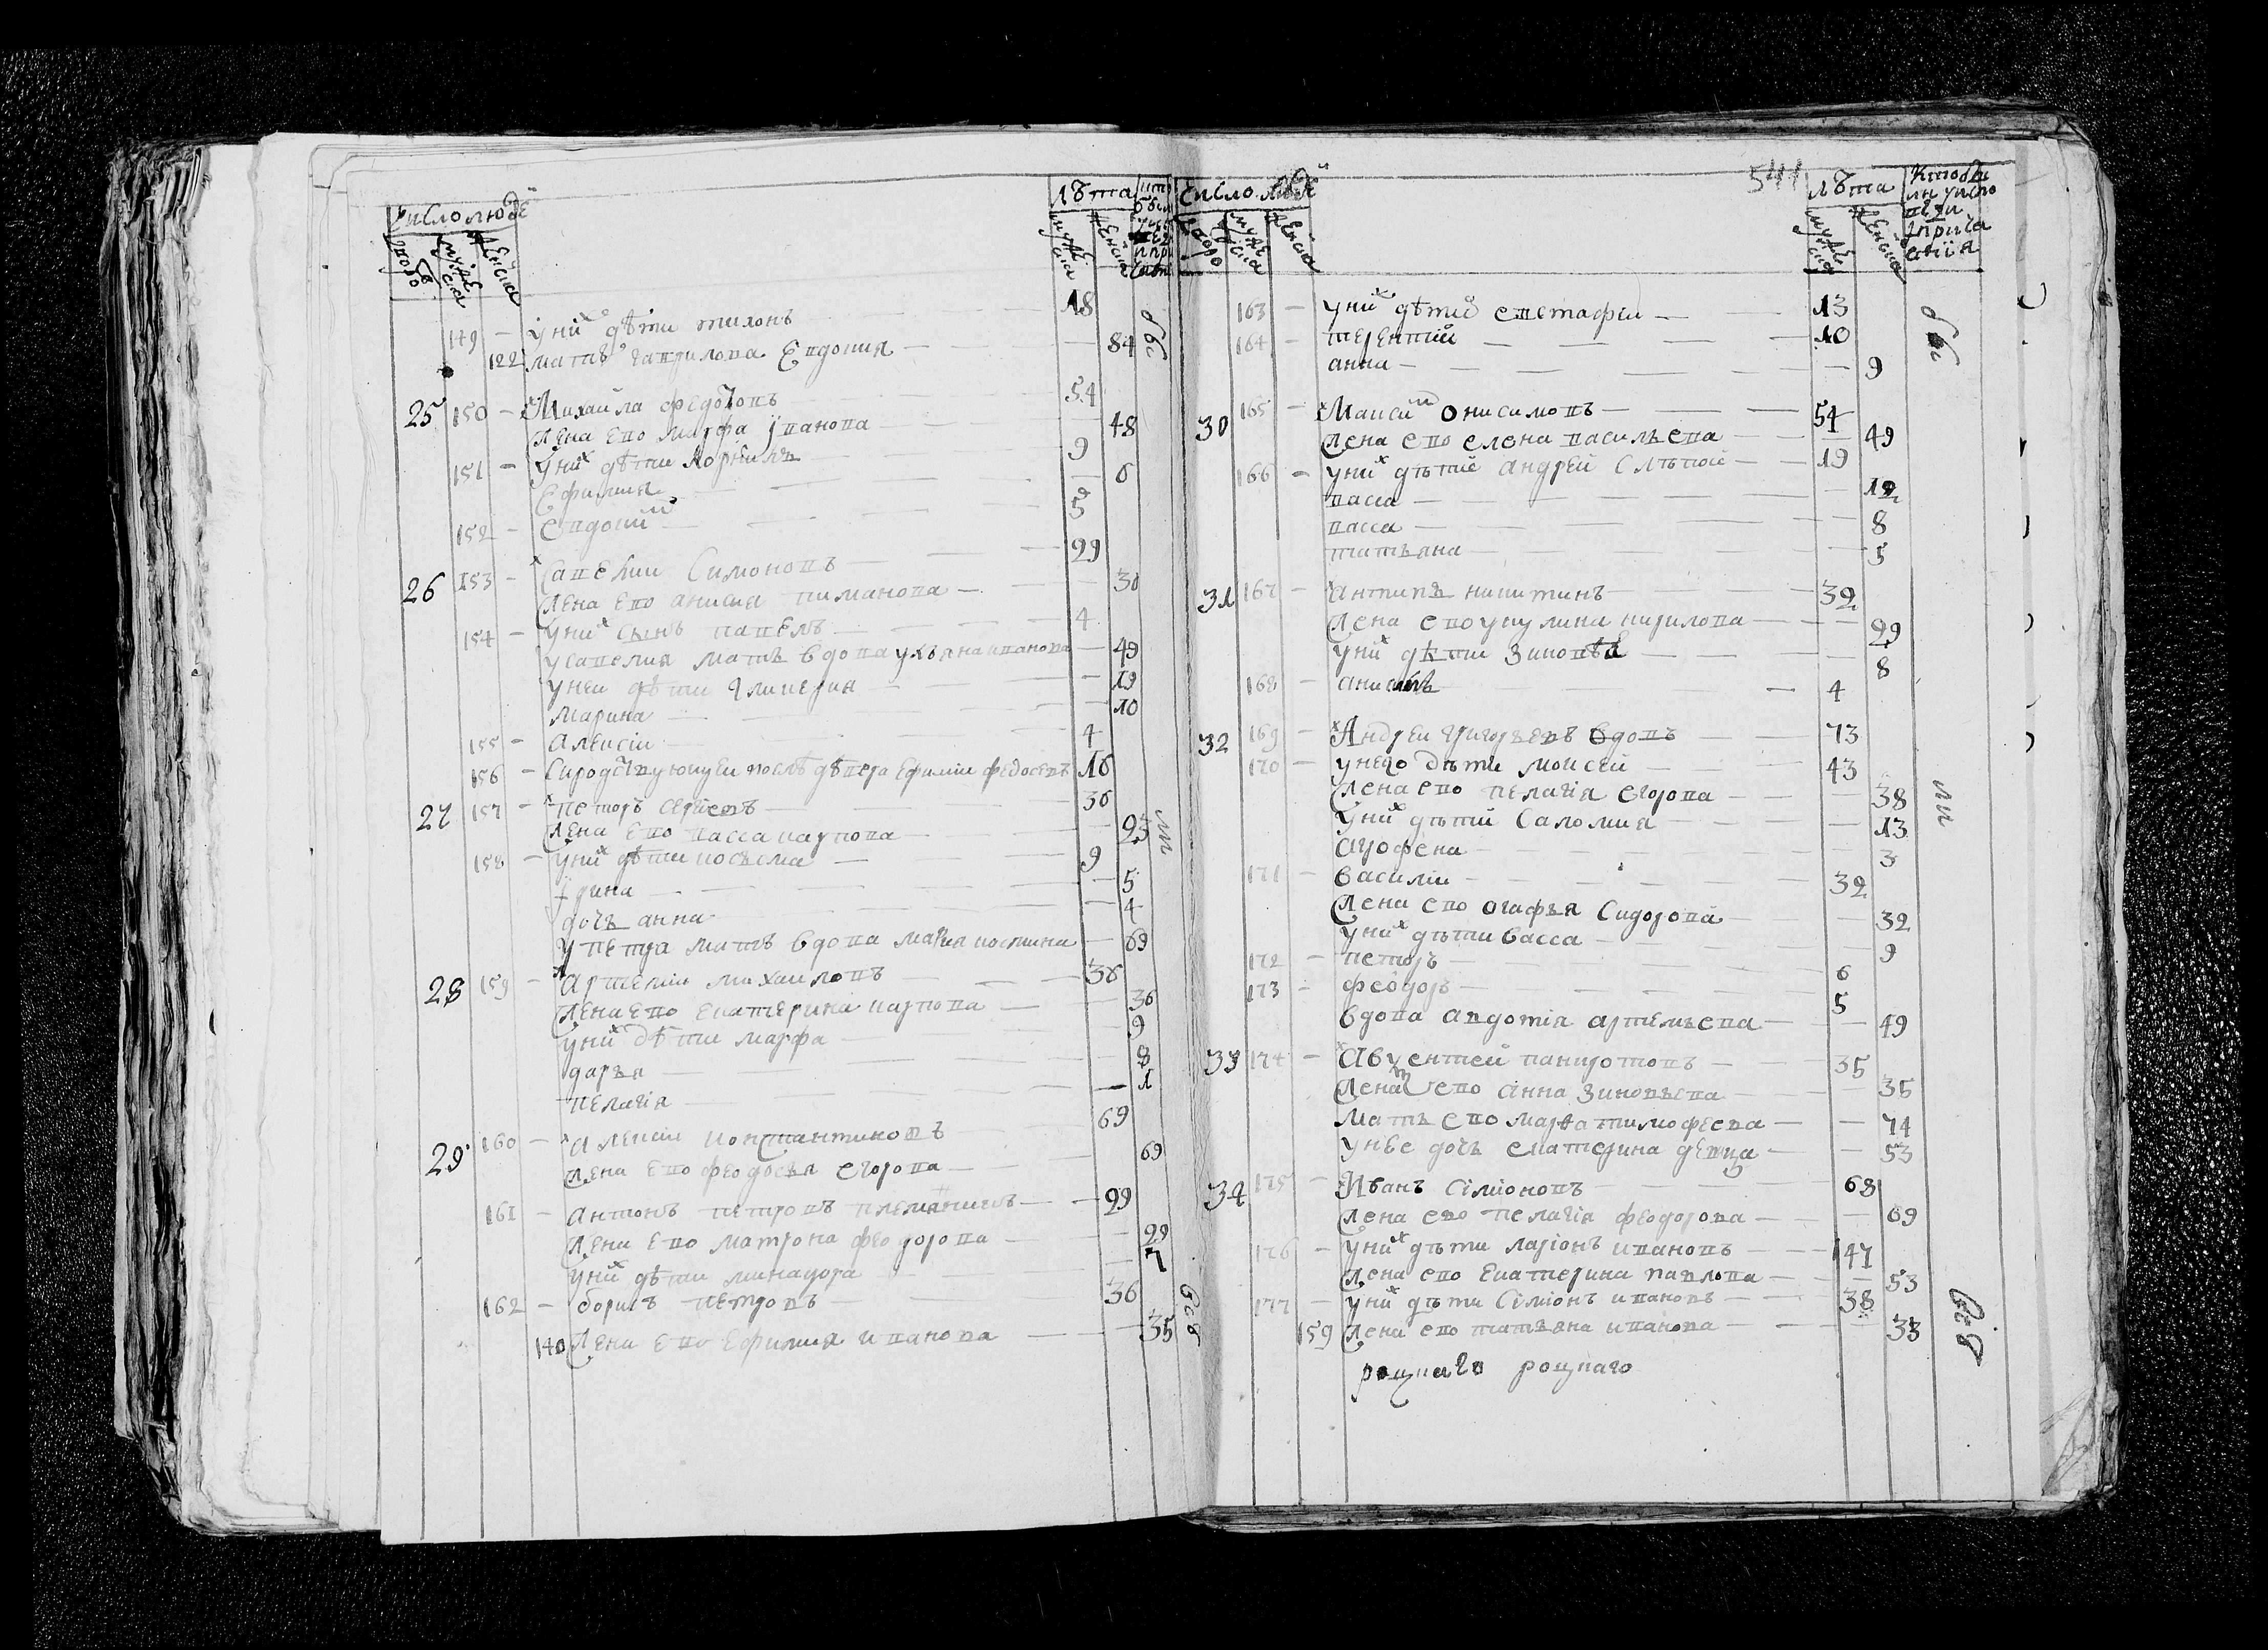 число людей
лѣта
дворо
мужеска
женска
мужеска
женска
149 – у них дѣти тихонъ – 18
122 матъ гаврилова Евдокия – 84
25 150 – Михаила федотовъ – 54
жена ево марфа Ивановa – 48
151 – у них дѣти корнилъ – 9
Ефимия – 6
152 – Евдоким – 5
26 153 – Савелии Симоновъ – 29
жена ево анисия – 30
154 – у них сынъ павелъ – 4
у савелия матъ вдова улъяна иванова – 49
у неи дѣти гликерия – 19
Марина – 10
155 – Алексіи – 4
156 – Ефимии федосеевъ 16
27 157 – петръ сергеевъ – 36
жена ево васса карпова – 25
158 – у них дѣти косъма – 9
Ірина – 5
дочъ анна – 4
у петра матъ вдова мария костина – 69
28 159 – Артемии михаиловъ – 36
жена ево екатерина карпова – 36
у них дѣти марфа – 9
даръя – 8
пелагія – 1
29 160 – Алексіи константиновъ – 69
жена ево феодосъя егорова – 69
161 – антонъ петровъ племяникъ – 29
жена ево матрона феодорова – 29
у них дѣти минадора – 7
162 – борисъ петровъ – 36
140 жена ево Ефимия иванова – 35
541
число людей
лѣта
дворо
мужеска
женска
мужеска
женска
163 – у них дѣтй евстафеи – 13
164 – терентии – 10
анна – 9
30 165 – Максим Онисимовъ – 54
жена ево елена василъева – 49
166 – у них дѣтие андреи слѣпой – 19
васса – 12
васса – 8
татъяна – 5
31 167 – антипъ никитинъ – 32
жена ево укулина кирилова – 29
у них дѣти – 8
168 – анисимъ – 4
32 169 – Андреи григоръевъ вдовъ – 73
170 – у него дѣти моисеи – 43
жена ево пелагія егорова – 38
у них дѣтии саломия – 13
агрофена – 3
171 – василіи – 32
жена ево огафъя сидорова – 32
у них дѣти васса – 9
172 – петръ – 6
173 – феодоръ – 5
вдова авдотія артемъева – 49
33 174 – Авксентей панкротовъ – 35
жена ево анна зиновъева – 35
матъ ево марѳа тимофеева – 74
у нее дочъ екатерина девица – 53
34 175 – Иванъ сімионовъ – 68
жена ево пелагія феодорова – 69
176 – у них дѣти ларіонъ ивановъ – 47
жена ево екатерина павлова – 53
177 – у них дѣти сімионъ ивановъ – 38
159 жена ево татъяна иванова – 33